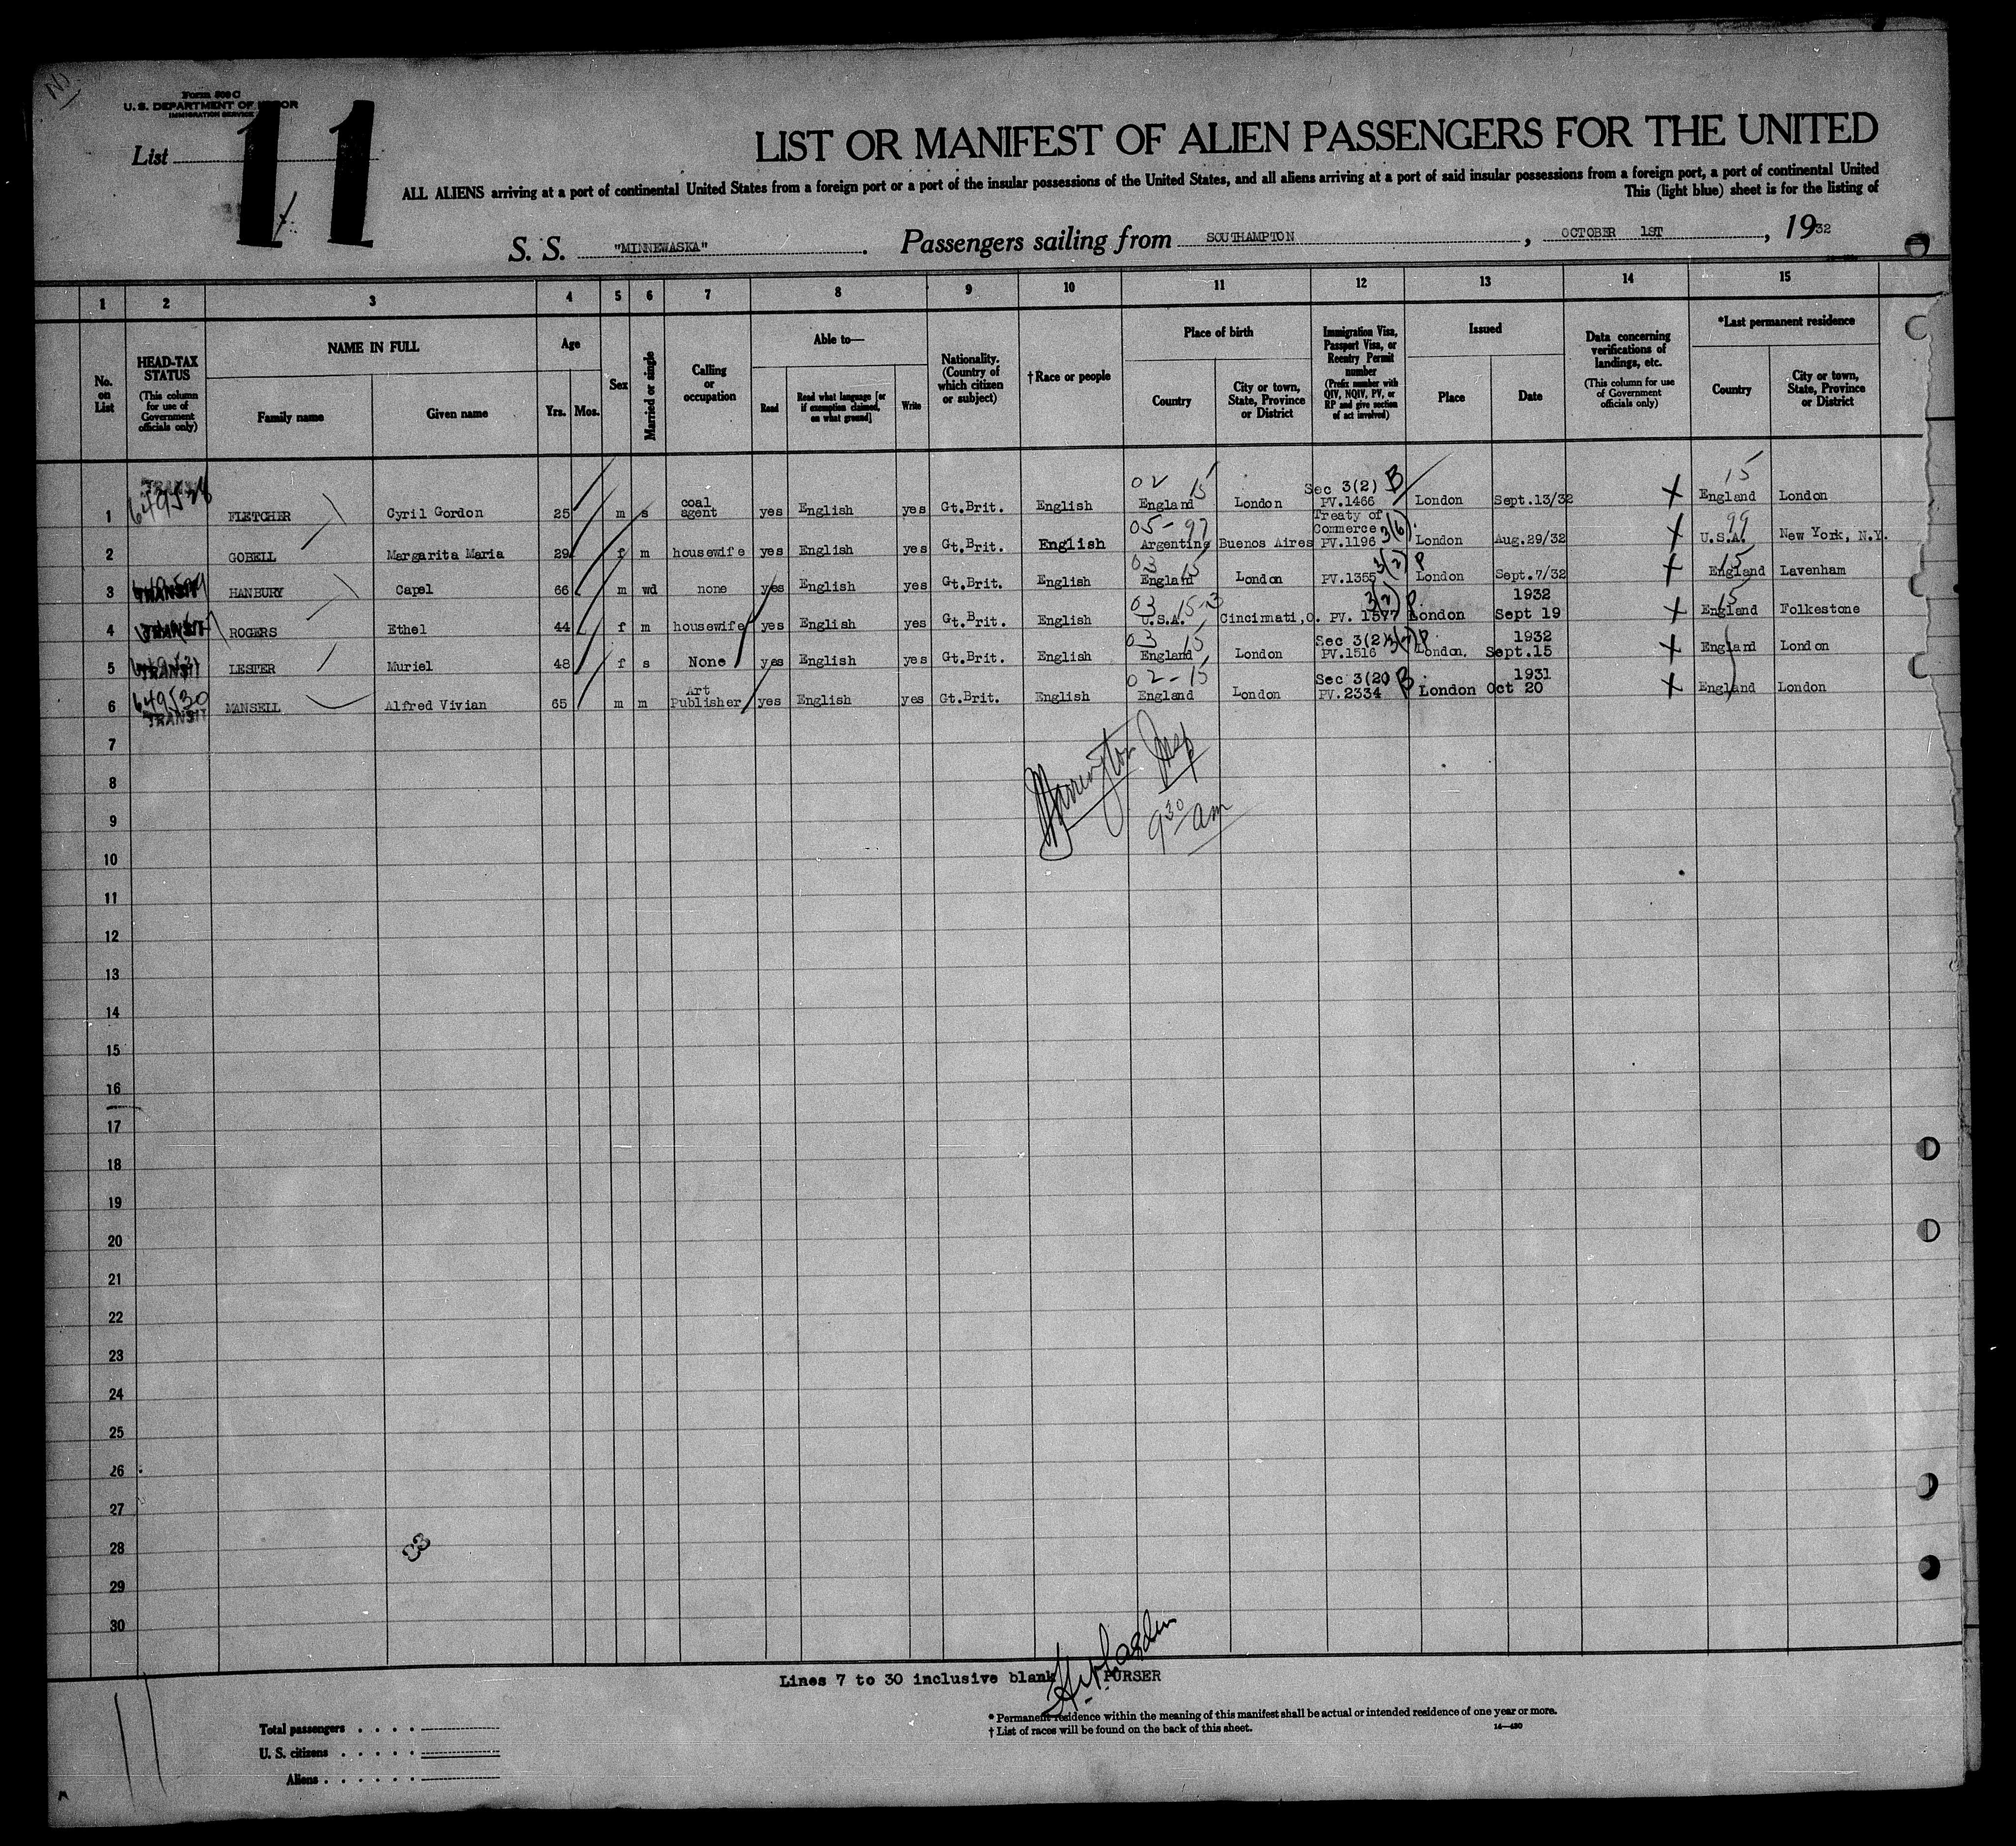 Form 500 C
U. S. DEPARTMENT OF LABOR
IMMIGRATION SERVICE
List 11
LIST OR MANIFEST OF ALIEN PASSENGERS FOR THE UNITED
ALL ALIENS arriving at a port of continental United States from a foreign port or a port of the insular possessions of the United States, and all aliens arriving at a port of said insular possessions from a foreign port, a port of continental United
This (light blue) sheet is for the listing of
S. S. "MINNEWASKA". Passengers sailing from SOUTHAMPTON, OCTOBER 1ST, 1932
1 2 3 4 5 6 7 8 9 10 11 12 13 14 15
No. on List
HEAD-TAX STATUS
(This column for use of Government officials only)
NAME IN FULL
Family name
Given name
Age
Yrs. Mos.
Sex
Married or single
Calling or occupation
Able to—
Read
Read what language [or if exemption claimed, on what ground]
Write
Nationality. (Country of which citizen or subject)
†Race or people
Place of birth
Country
City or town, State, Province or District
Immigration Visa, Passport Visa, or Reentry Permit number
(Prefix number with QIV, NQIV, PV, or RP and give section of act involved)
Issued
Place
Date
Data concerning verifications of landings, etc.
(This column for use of Government officials only)
*Last permanent residence
Country
City or town, State, Province or District
02 15 Sec 3(2) B 15
1 TRANSIT FLETCHER Cyril Gordon 25 m s coal agent yes English yes Gt.Brit. English England London PV.1466 London Sept.13/32 X England London
05-97 Treaty of Commerce 3(6) 99
2 GOBELL Margarita Maria 29 f m housewife yes English yes Gt.Brit. English Argentine Buenos Aires PV.1196 London Aug.29/32 X U.S.A. New York, N.Y.
03 15 3(2) P 15
3 TRANSIT HANBURY Capel 66 m wd none yes English yes Gt.Brit. English England London PV.1355 London Sept.7/32 X England Lavenham
03 15-3 3(2) P 1932 15
4 TRANSIT ROGERS Ethel 44 f m housewife yes English yes Gt.Brit. English U.S.A. Cincinnati,O. PV. 1577 London Sept 19 X England Folkestone
03 15 Sec 3(2) 3(2) P 1932
5 TRANSIT LESTER Muriel 48 f s None yes English yes Gt.Brit. English England London PV.1516 London. Sept.15 X England London
02-15 Sec 3(20 B 1931
6 649530 TRANSIT MANSELL Alfred Vivian 65 m m Art Publisher yes English yes Gt.Brit. English England London PV.2334 London Oct 20 X England London
7
8
9 9 30 am
10
11
12
13
14
15
16
17
18
19
20
21
22
23
24
25
26
27
28 33
29
30
Lines 7 to 30 inclusive blank PURSER
* Permanent residence within the meaning of this manifest shall be actual or intended residence of one year or more.
† List of races will be found on the back of this sheet. 14—480
Total passengers . . . .
U. S. citizens . . . . .
Aliens . . . . . .